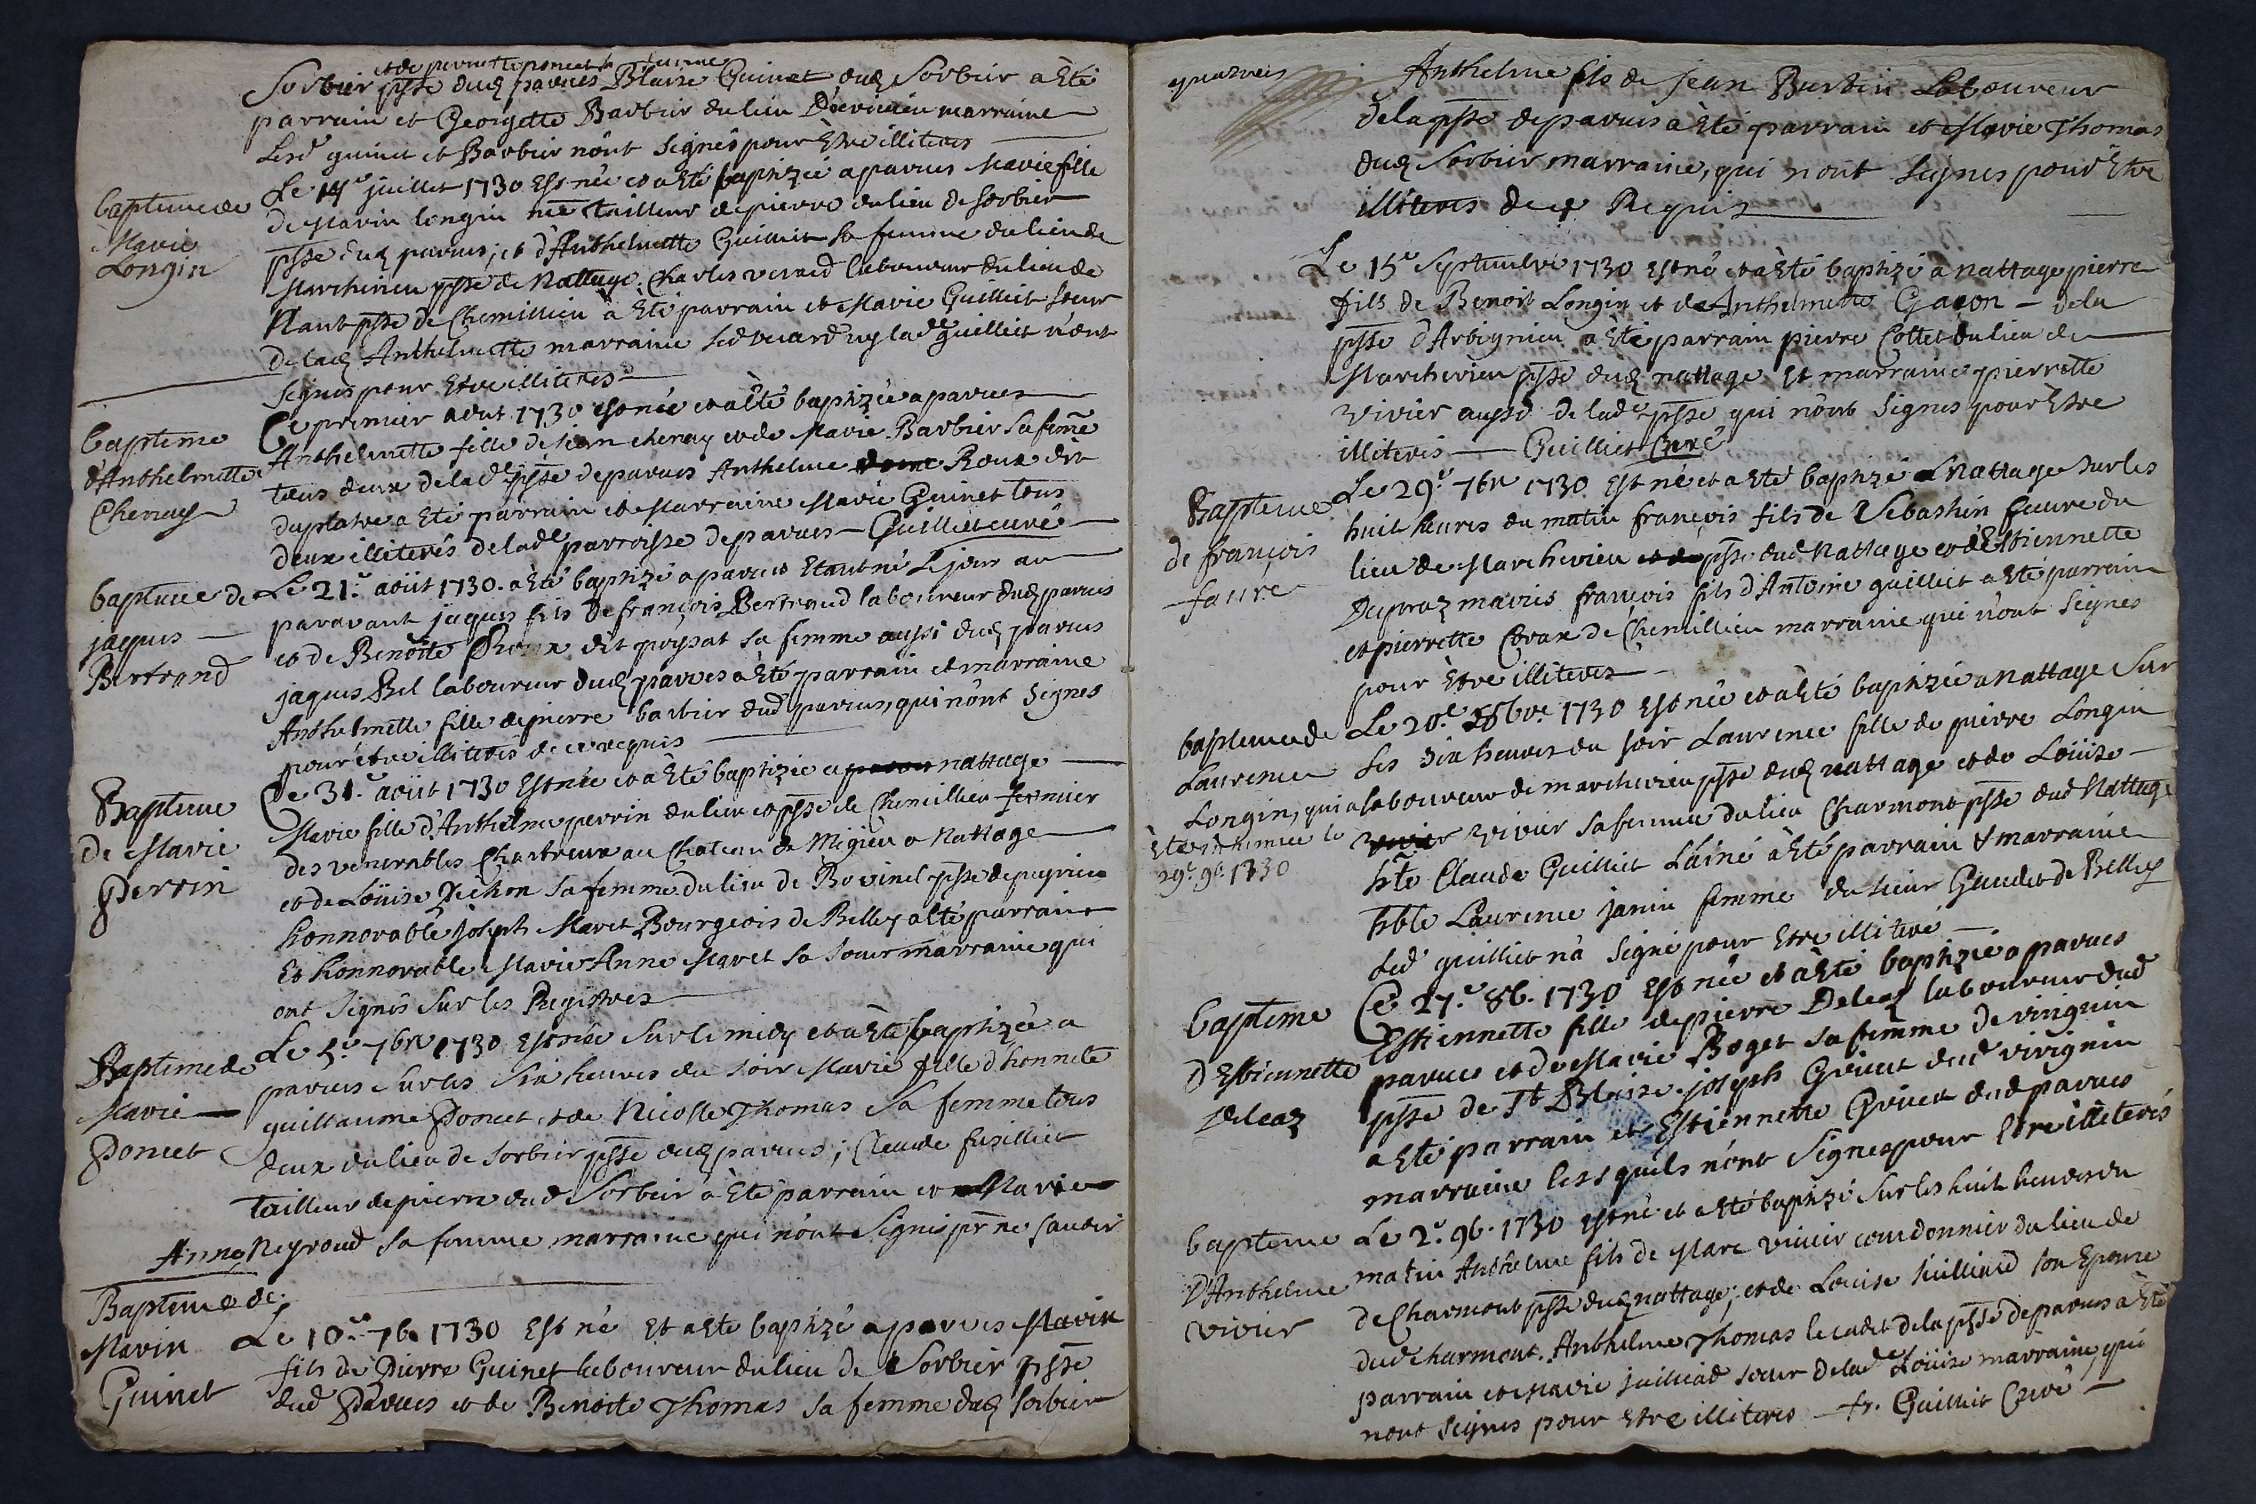 et de pernette poncet sa femme
Sorbier psse dud parves Blaise Guinet dud Sorbier a êté
parrain et Georgette Barbier du lieu marraine
Lesd guinet et Barbier n'ont signés pour Etre illiteres
baptemede
Marie
Longin
Le 14e juillet 1730 Est née et a êté baptizée a parves Marie fille
de Marin longin mê tailleur de pierre du lieu de Sorbier
psse dud parves; et d'Anthelmette Guilliet sa femme du lieu de
Marchirieu psse de Nattage. Charles verard laboureur du lieu de
Nant psse de Chemillieu à êté parrain et Marie Guilliet soeur
de lad Anthelmette marraine led verard ny lade guilliet n'ont
signés pour Etre illiteres
baptême
d'Anthelmette
Chenay
Ce premier août 1730 est née et a êté baptizée a parves
Anthelmette fille de jean chenay et de Marie Barbier sa femē
tous deux de lade psse de parves Anthelme Roux dit
duplatre a êté parrain et Marraine Marie Guinet tous
deux illiterés de lade parroisse de parves — Guilliet curé
baptême de
jaques
Bertrand
Le 21e août 1730. a êté baptizé a parves Etant né le jour au
paravant jaques fils de françois Bertrand laboureur dud parves
et de Benoite Roux dit poyssat sa femme aussi dud parves
jaques Bel laboureur dud parves a êté parrain et marraine
Anthelmette fille de pierre barbier dud parves, qui n'ont signés
pour être illiterés de ce requis
Bapteme
de Marie
Perrin
Ce 31e août 1730 Est née et a êté baptizée a nattage
Marie fille d'Anthelme perrin du lieu et psse de Chemillieu fermier
des venerables Chartreux au Chateau de Migieu a Nattage
et de Loüise sa femme du lieu de Bovinel psse de peyrieu
honnorable joseph Maret Bourgeois de Belley a êté parrain
et honnorable Marie Anne Maret sa soeur marraine qui
ont signés sur les Registres
Baptemede
Marie
Poncet
Le 5e 7bre 1730 est née sur le midy et a êté baptizée a
parves sur les six heures du soir Marie fille d'honnete
guillaume Poncet et de Nicolle Thomas sa femme tous
deux du lieu de sorbier psse dud parves; Claude fusilliet
tailleur de pierre dud Sorbier à êté parrain et Marie
Anne Neyroud sa femme marraine qui n'ont signés pr ne savoir
Bapteme de
Marin
Guinet
Le 10e 7b. 1730 Est né et a êté baptizé a parves Marin
fils de Pierre Guinet laboureur du lieu de Sorbier psse
dud Parves et de Benoite Thomas sa femme dud sorbier
Anthelme fils de Jean Burdin Laboureur
de la psse de parves a êté parrain et Marie Thomas
dud Sorbier marraine, qui n'ont signés pour Etre
illiteres de ce Requis
Le 15e Septembre 1730 est né et a êté baptizé a nattage pierre
fils de Benoit Longin et de Anthelmette Gacon — de la
psse d'Arbignieu a êté parrain pierre Collet du lieu de
Marcherieu psse dud nattage et marraine pierrette
vivier aussi de lade psse qui n'ont signés pour Etre
illiteris — Guilliet Curé
Bapteme
de françois
faure
Le 29e 7bre 1730 Est né et a êté baptizé a Nattage sur les
huit heures du matin françois fils de Sebastien faure du
lieu de Marcherieu psse dud Nattage et d'Estiennette
Dupraz mariés françois fils d'Antoine guilliet a êté parrain
et pierrette Cuvax de Chemillieu marraine qui n'ont signés
pour être illiteres
baptemede
Laurence
Longin, qui a
êté inhumée le
29e 9b. 1730
Le 20e 8bre 1730 est née et a êté baptizée a Nattage sur
les dix heures du soir Laurence fille de pierre Longin
laboureur de marcherieu psse dud nattage et de Loüise
vivier sa femme du lieu Charmont psse dud Nattage
hte Claude Guilliet L'ainé à êté parrain & marraine
hble Laurence janin femme du sieur Gaudet de Belley
Led guilliet n'a signé pour Etre illiteré
baptême
d'Estiennette
Deleaz
Ce 27e 8b. 1730 est née et a êté baptizée a parves
Estiennette fille de pierre Deleaz laboureur dud
parves et de Marie Boget sa femme de virignin
psse de St Blaise. joseph Grivet dud virignin
a êté parrain et Estiennette Grivet dud parves
marraine lesquels n'ont signés pour Etre illiterés
bapteme
D'Anthelme
vivier
Le 2e 9b. 1730 est né et a êté baptizé sur les huit heures du
matin Anthelme fils de Marc vivier cordonnier du lieu de
de Charmont psse dud nattage; et de Louise juilliard son Epouse
dud charmont. Anthelme Thomas le cadet de la psse de parves a êté
parrain et Marie juilliard soeur de lade Loüise marraine, qui
n'ont signés pour Etre illiteres — fr. Guilliet Curé